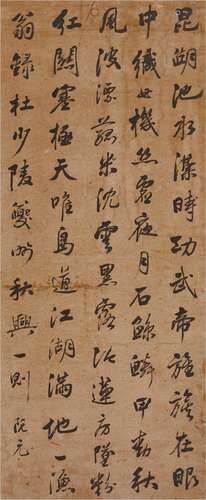 昆湖池水漢時功武帝旌旗在眼
中織女機絲虛夜月石鯨鱗甲動秋
風波漂菰米沈雲黑露冷蓮房墜粉
紅關塞極天唯鳥道江湖滿地一漁
翁錄杜少陵夔州秋興一則 阮元